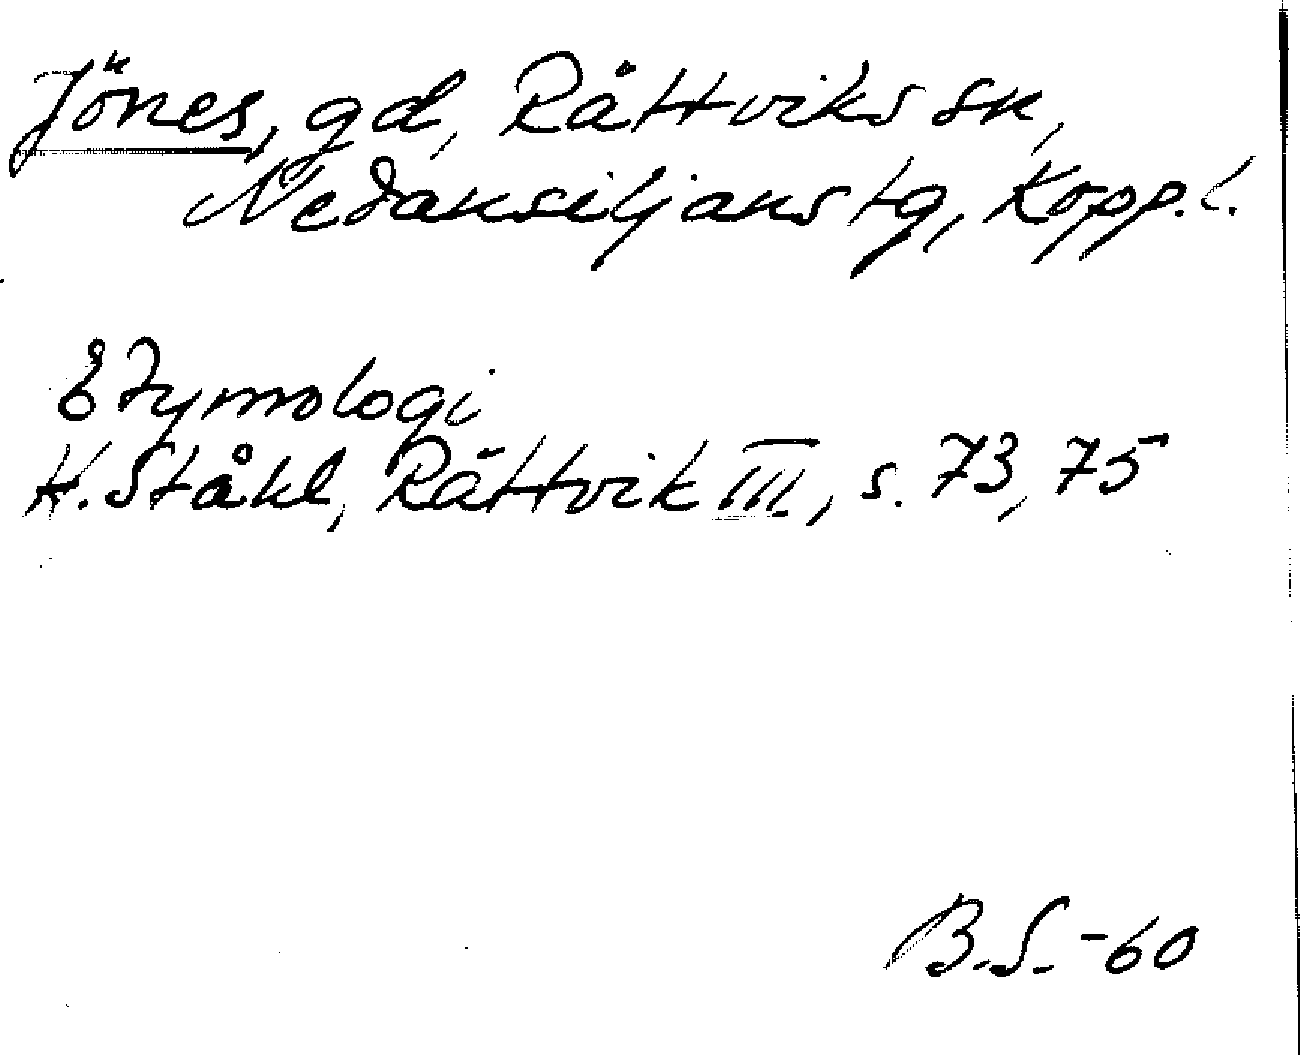 Jönes, gd, Rättviks sn,
Nedansiljans tg, Kopp. l.
Etymologi
H. Ståhl, Rättvik III, s. 73, 75
B.S. -60